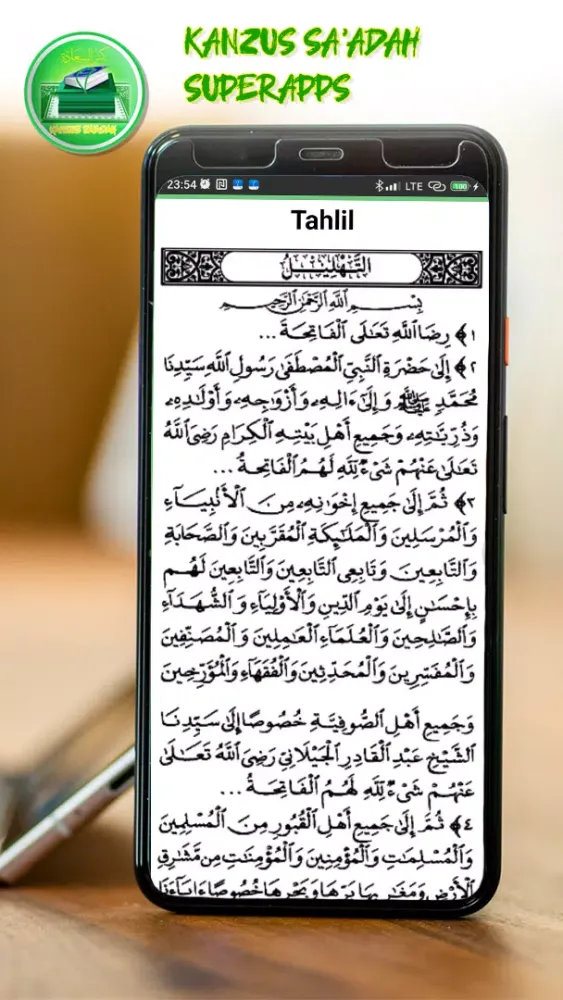 KANZUS SA'ADAH
SUPERAPPS
كنز السعادة
KANZUS SA'ADAH
23:54
LTE
100
Tahlil
التَّهْلِيْلُ
بِسْمِ اللهِ الرَّحْمٰنِ الرَّحِيْمِ
١﴾ رِضَا اللهِ تَعَالَى الْفَاتِحَةَ ...
٢﴾ إِلَى حَضْرَةِ النَّبِيِّ الْمُصْطَفَى رَسُولِ اللهِ سَيِّدِنَا
مُحَمَّدٍ ﷺ وَإِلَى ءَالِهِ، وَأَزْوَاجِهِ، وَأَوْلَادِهِ،
وَذُرِّيَّاتِهِ، وَجَمِيعِ أَهْلِ بَيْتِهِ الْكِرَامِ رَضِيَ اللهُ
تَعَالَى عَنْهُمْ شَيْءٌ لِلّٰهِ لَهُمُ الْفَاتِحَةُ ...
٣﴾ ثُمَّ إِلَى جَمِيعِ إِخْوَانِهِ، مِنَ الْأَنْبِيَاءِ
وَالْمُرْسَلِينَ وَالْمَلَٰئِكَةِ الْمُقَرَّبِينَ وَالصَّحَابَةِ
وَالتَّابِعِينَ وَتَابِعِي التَّابِعِينَ وَالتَّابِعِينَ لَهُمْ
بِإِحْسَٰنٍ إِلَى يَوْمِ الدِّينِ وَالْأَوْلِيَاءِ وَالشُّهَدَاءِ
وَالصَّٰلِحِينَ وَالْعُلَمَاءِ الْعَامِلِينَ وَالْمُصَنِّفِينَ
وَالْمُفَسِّرِينَ وَالْمُحَدِّثِينَ وَالْفُقَهَاءِ وَالْمُؤَرِّخِينَ
وَجَمِيعِ أَهْلِ الصُّوفِيَّةِ خُصُوصًا إِلَى سَيِّدِنَا
الشَّيْخِ عَبْدِ الْقَادِرِ الْجَيْلَانِيِّ رَضِيَ اللهُ تَعَالَى
عَنْهُمْ شَيْءٌ لِلّٰهِ لَهُمُ الْفَاتِحَةُ ...
٤﴾ ثُمَّ إِلَى جَمِيعِ أَهْلِ الْقُبُورِ مِنَ الْمُسْلِمِينَ
وَالْمُسْلِمَاتِ وَالْمُؤْمِنِينَ وَالْمُؤْمِنَاتِ مِنْ مَشَارِقِ
الْأَرْضِ وَمَغَارِبِهَا بَرِّهَا وَبَحْرِهَا خُصُوصًا ءَابَاءَنَا